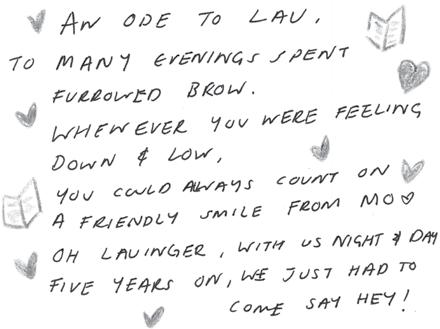 AN ODE TO LAU,
TO MANY EVENINGS SPENT
FURROWED BROW.
WHENEVER YOU WERE FEELING
DOWN & LOW,
YOU COULD ALWAYS COUNT ON
A FRIENDLY SMILE FROM MO
OH LAUINGER, WITH US NIGHT & DAY
FIVE YEARS ON, WE JUST HAD TO
COME SAY HEY!